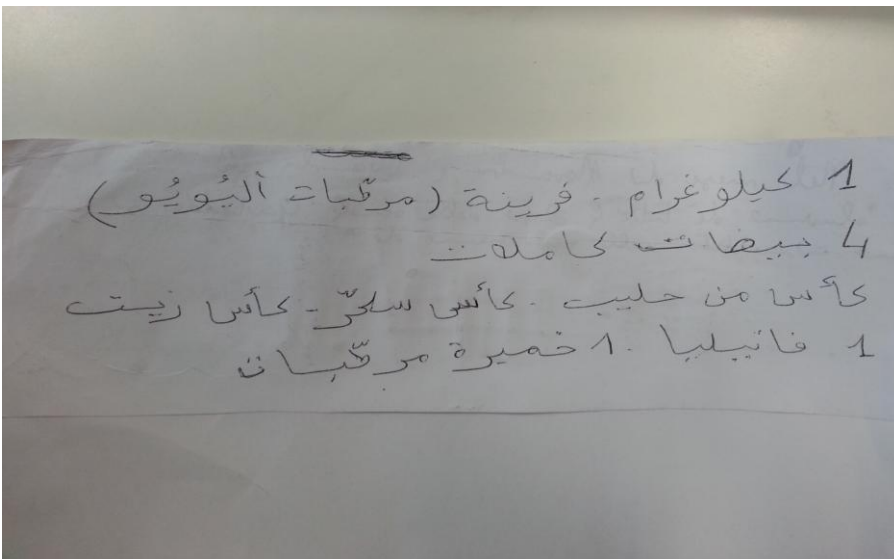 1 كيلو غرام . فرينة (مرطّبات أليُويُو)
4 بيضات كاملات
كأس من حليب . كأس سكّر - كأس زيت
1 فانيليا . 1 خميرة مرطّبات